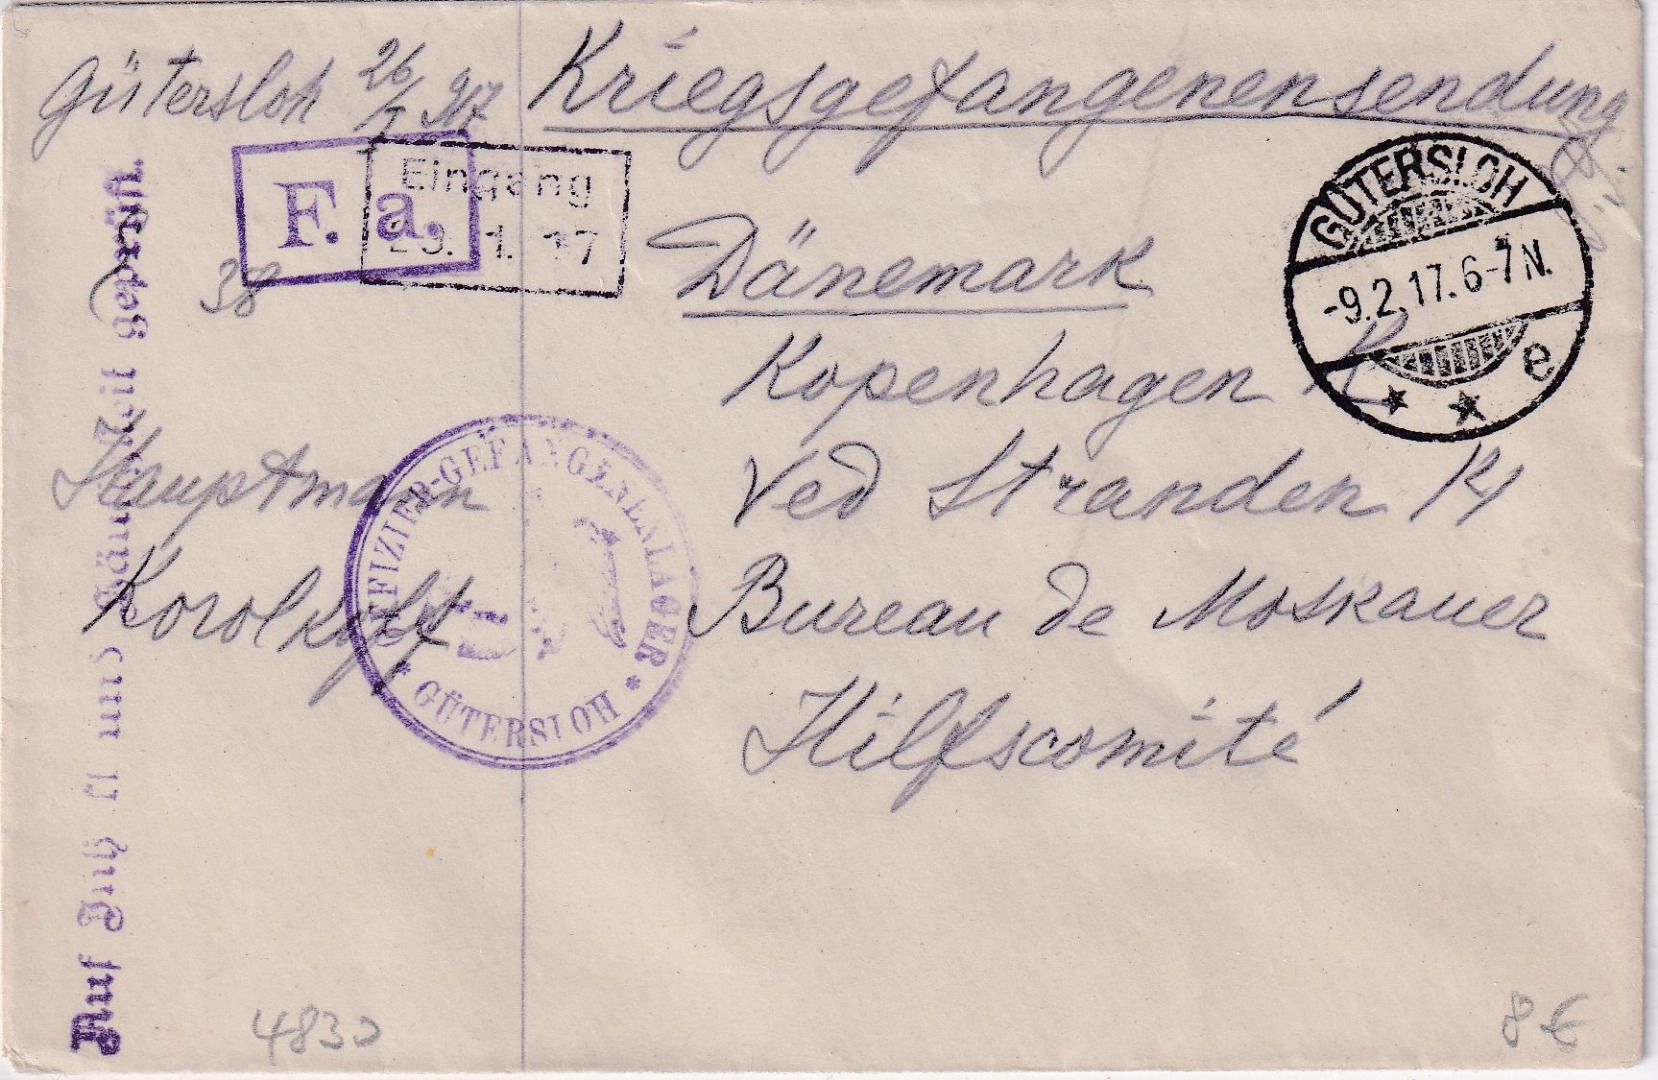 Gütersloh 26/I 917
Kriegsgefangenensendung
F. a.
Eingang
1. 17
38
GÜTERSLOH
-9.2.17.6-7N.
* * e
Dänemark
Kopenhagen K
Ved Stranden 14
Bureau de Moskauer
Hilfscomité
Hauptmann
OFFIZIER-GEFANGENENLAGER
* GÜTERSLOH *
Auf und Zeit geprüft.
4830
8 €